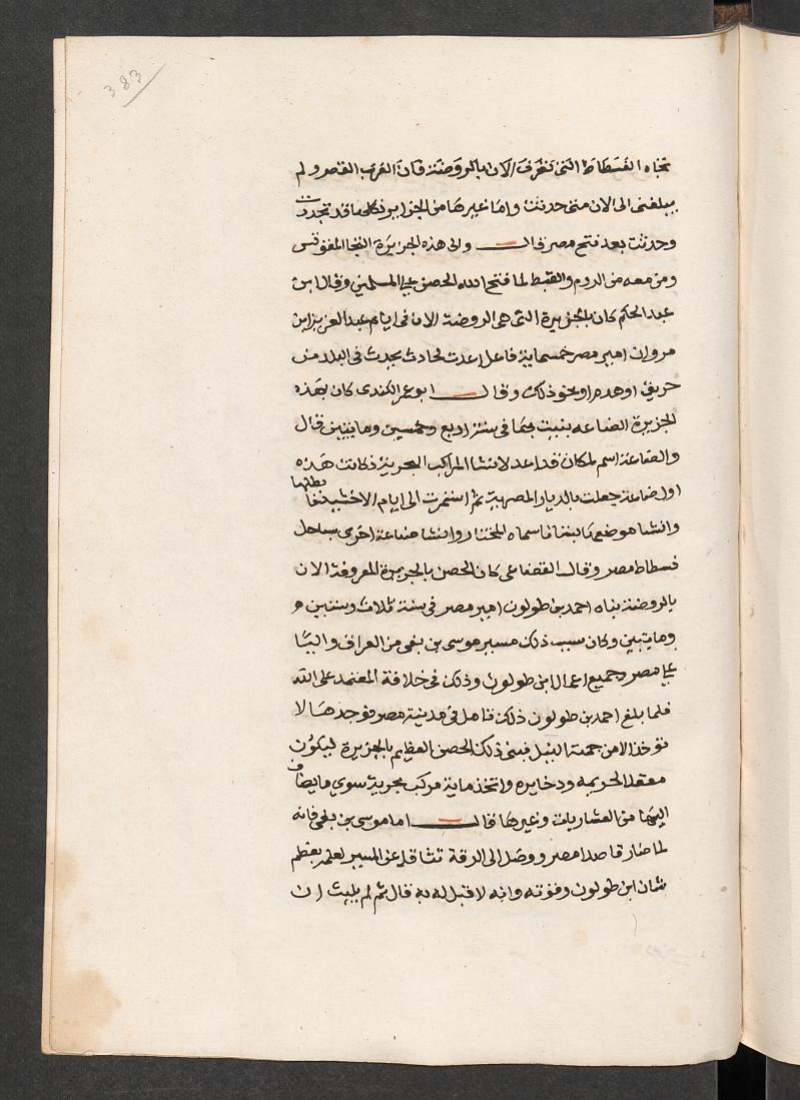 383
تجاه الفسطاط التى تعرف الان بالروضة فان العرب القصر ولم
يبلغنى الى الان متى حدثت واما غيرها من الجزاير فكلها قد تجددت
وحدثت بعد فتح مصر قالــــ والى هذه الجزيرة التجا المقوقس
ومن معه من الروم والقبط لما فتح الله الحصن على المسلمين وقال ابن
عبد الحكم كان بالجزيرة التى هى الروضة الان فى ايام عبد العزيز ابن
مروان امير مصر خمسماية فاعل اعدت لحادث يحدث فى البلد من
حريق او هدم او نحو ذلك وقالــــ ابو عمر الكندى كان بهذه
الجزيرة الصناعه بنيت بها فى سنة اربع وخمسين ومايتين قال
والصناعة اسم لمكان قد اعد لانشا المراكب البحرية فكانت هذه
اول صناعة جعلت بالديار المصرية ثم استمرت الى ايام الاخشيد
وانشا موضعها بستانا سماه المختار وانشا صناعة اخرى بساحل
فسطاط مصر وقال القضاعى كان الحصن بالجزيرة المعروفة الان
بالروضة بناه احمد بن طولون امير مصر فى سنة ثلاث وستين و
ومايتين وكان سبب ذلك مسير موسى بن بغى من العراق واليا
على مصر وجميع اعمال ابن طولون وذلك فى خلافة المعتمد على الله
فلما بلغ احمد بن طولون ذلك تامل فى مدينة مصر فوجدها لا
توخذ الا من جهة النيل فبنى ذلك الحصن العظيم بالجزيرة ليكون
معقلا لحريمه ودخايره واتخذ ماية مركب بحرية سوى ما يضاف
اليها من العشاريات وغيرها قالــــ اما موسى بن بغى فانه
لما صار قاصدا مصر ووصل الى الرقة تثاقل عن المسير لعلمه بعظم
شان ابن طولون وقوته وانه لا قبل له به قال ثم لم يلبث ان